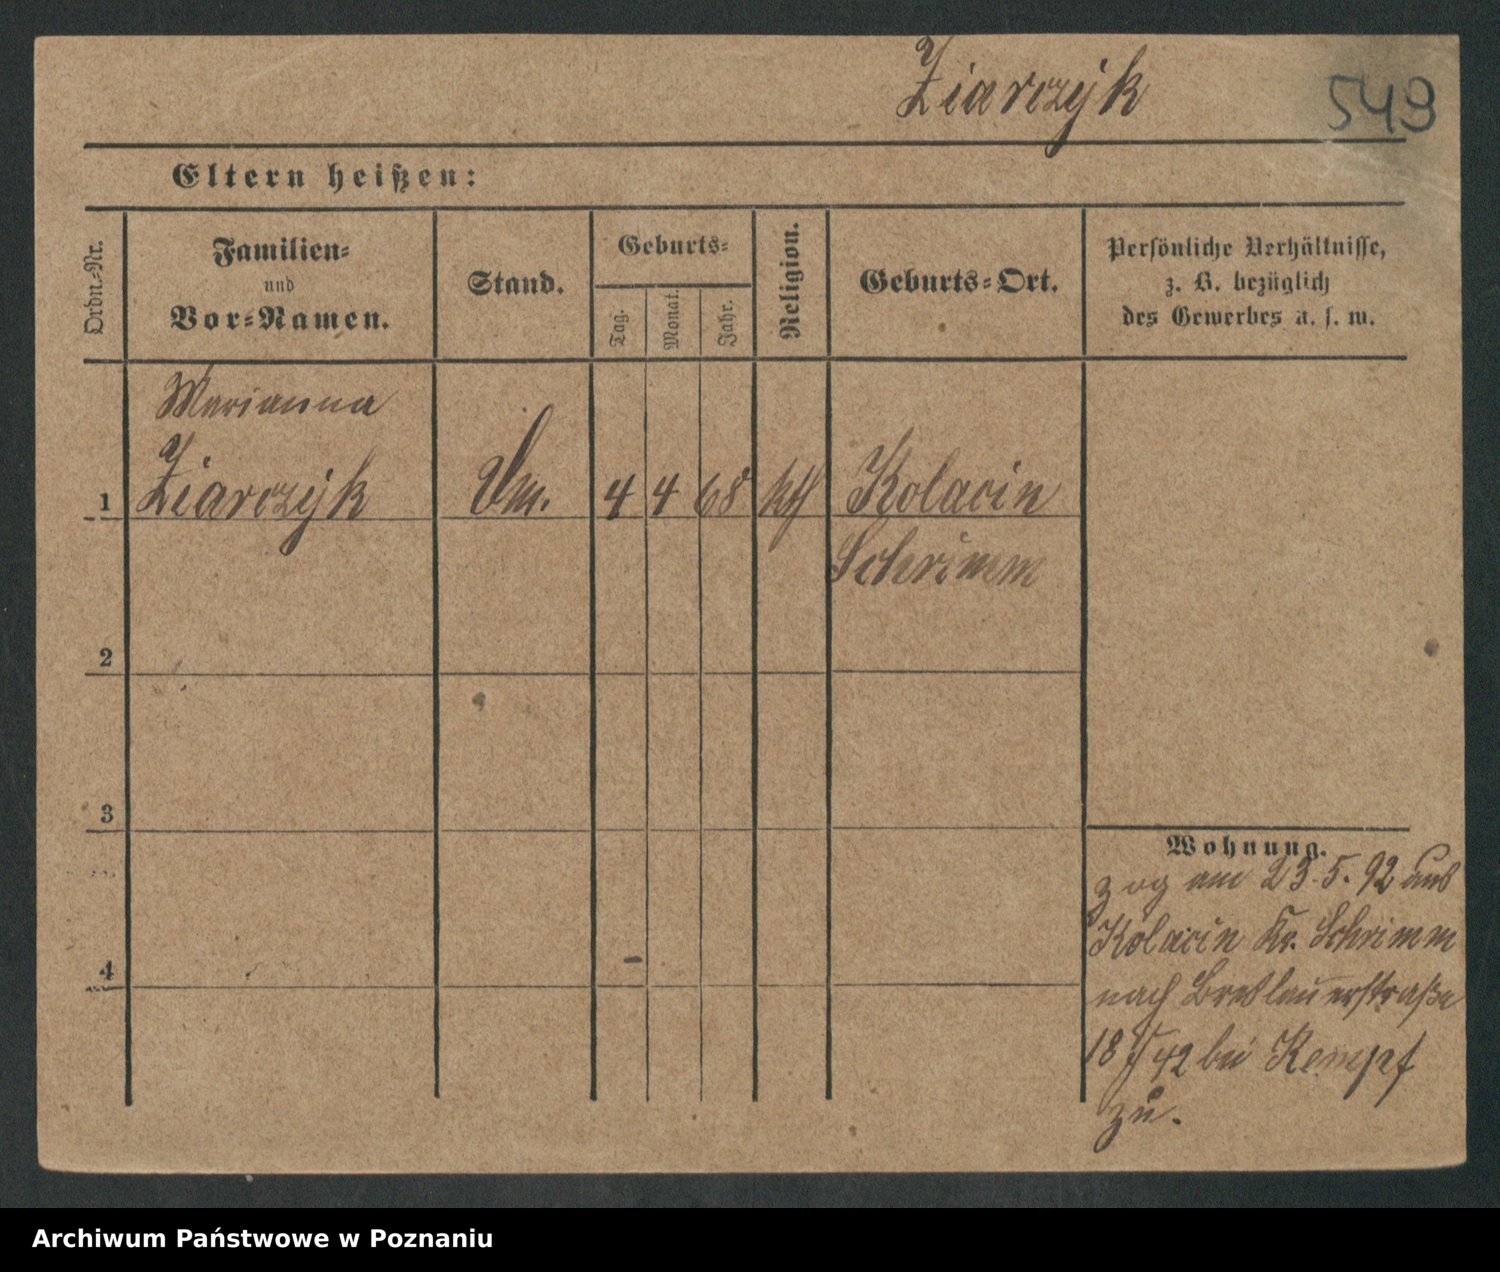 Ziarczyk
549
Eltern heißen:
Ordn.-Nr.
Familien-
und
Vor-Namen.
Stand.
Geburts-
Tag.
Monat.
Jahr.
Religion.
Geburts-Ort.
Persönliche Verhältnisse,
z. B. bezüglich
des Gewerbes u. s. w.
Marianna
1 Ziarczyk 4 4 68 kth Kolacin
Schrimm
2
3
4
Wohnung.
zog am 23.5.92 aus
Kolacin Kr. Schrimm
nach Breslauerstraße
18/42 bei Kempf
zu.
Archiwum Państwowe w Poznaniu